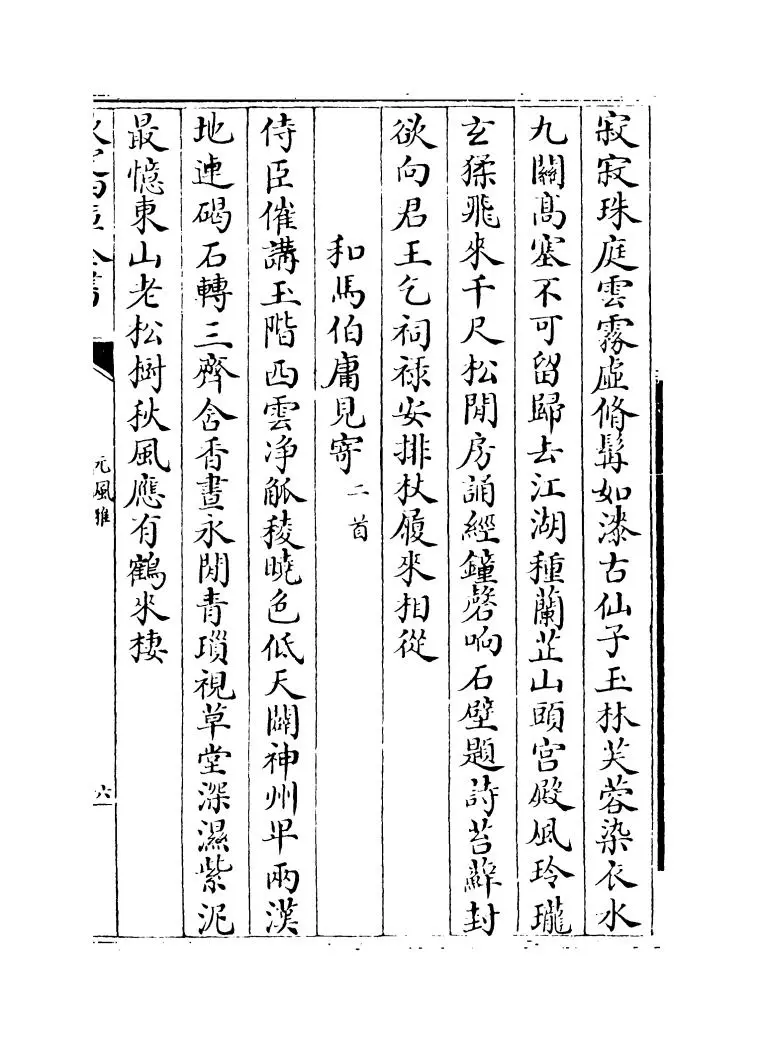 寂寂珠庭雲霧虛脩髯如漆古仙子玉林芙蓉染衣水
九關髙塞不可留歸去江湖種蘭芷山頭宫殿風玲瓏
玄猱飛來千尺松閒房誦經鐘磬响石壁題詩苔蘚封
欲向君王乞祠祿安排杖履來相從
和馬伯庸見寄二首
侍臣催講玉階西雲净觚稜曉色低天闢神州卑兩漢
地連碣石轉三齊含香晝永閒青瑣視草堂深濕紫泥
最憶東山老松樹秋風應有鶴來棲
元風雅
六